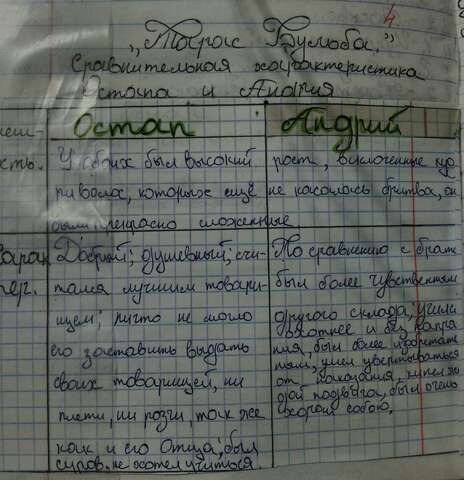 4
„Тарас Бульба."
Сравнительная характеристика
Остапа и Андрия
Остап Андрий
неш-
ость.
У обоих был высокий рост, вислоченные
волоса, которых ещё не касалась бритва, он
были прекрасно сложенные
Харак
тер.
Добрый; душевный; счи-
тался лучшим товари-
щем; ничто не могло
его заставить выдать
своих товарищей, ни
плети, ни розги, так же
как и его Отца; был
суров. не хотел учиться.
По сравнению с брат
был более чувственным
другого склада, учили
охотнее и без напря
ния, был более изобретат
ным, умел увёртываться
от наказания, кипел жа
дой подвига, был очень
хорош собою.